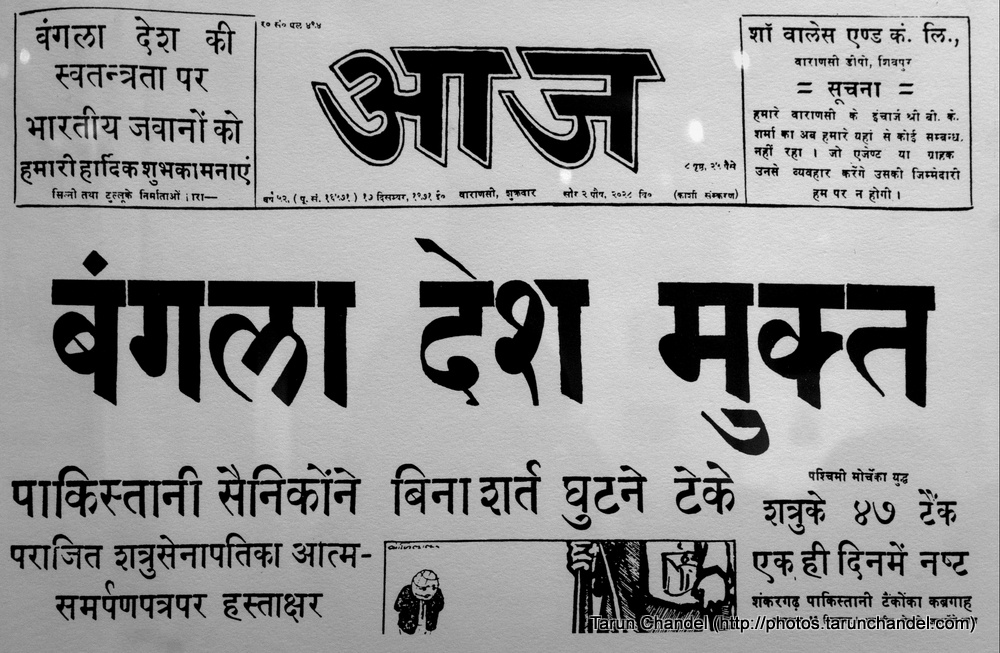 बंगला देश की
स्वतन्त्रता पर
भारतीय जवानों को
हमारी हार्दिक शुभकामनाएं
तथा टुल्लूके निर्माताओं
आज
८ पृष्ठ, २५ पैसे
वर्ष ५२, ( पू. सं. १६५७१ ) १७ दिसम्बर, १९७१ ई० वाराणसी, शुक्रवार सौर २ पौष, २०२८ वि० (काशी संस्करण)
शॉ वालेस एण्ड कं. लि.,
वाराणसी डीपो, शिवपुर
= सूचना =
हमारे वाराणसी के इंचार्ज श्री बी. के.
शर्मा का अब हमारे यहां से कोई सम्बन्ध.
नहीं रहा । जो एजेण्ट या ग्राहक
उनसे व्यवहार करेंगे उसकी जिम्मेदारी
हम पर न होगी ।
बंगला देश मुक्त
पाकिस्तानी सैनिकोंने बिना शर्त घुटने टेके
पराजित शत्रुसेनापतिका आत्म-
समर्पणपत्रपर हस्ताक्षर
पश्चिमी मोर्चेका युद्ध
शत्रुके ४७ टैंक
एक ही दिनमें नष्ट
शंकरगढ़ पाकिस्तानी टैंकोंका कब्रगाह
Tarun Chandel (http://photos.tarunchandel.com)